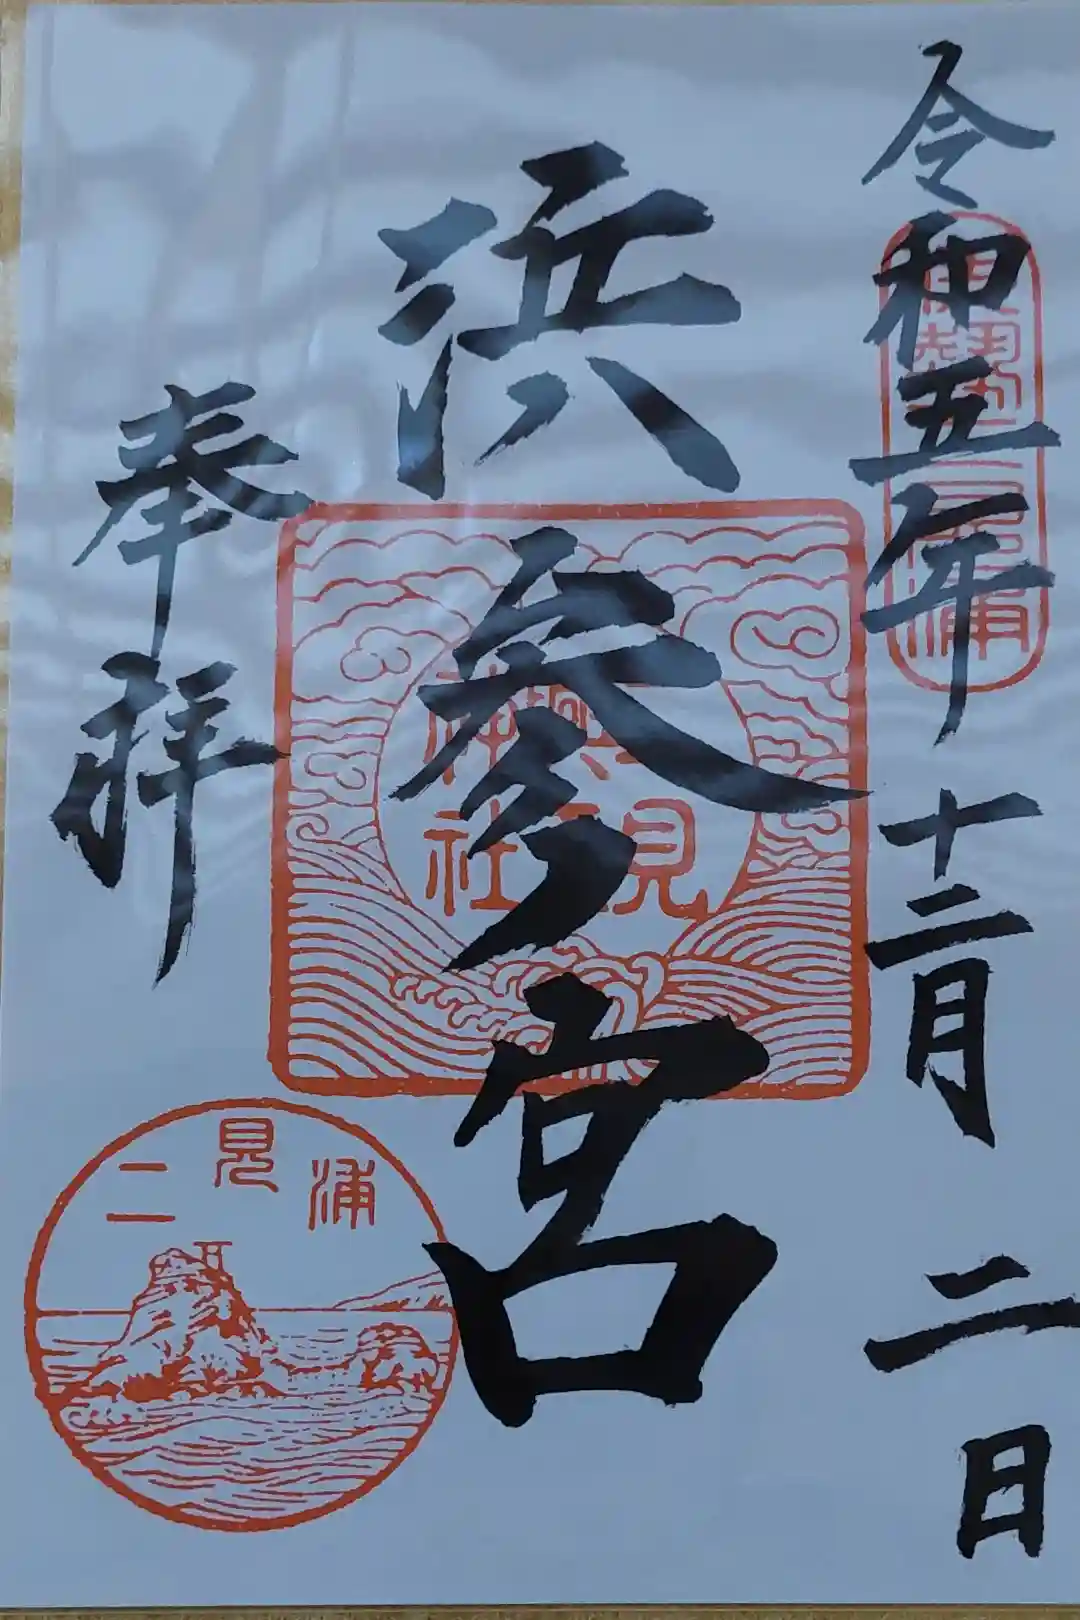 令和五年十二月二日
伊勢二見浦
浜參宮
二見興玉神社
奉拝
二見浦